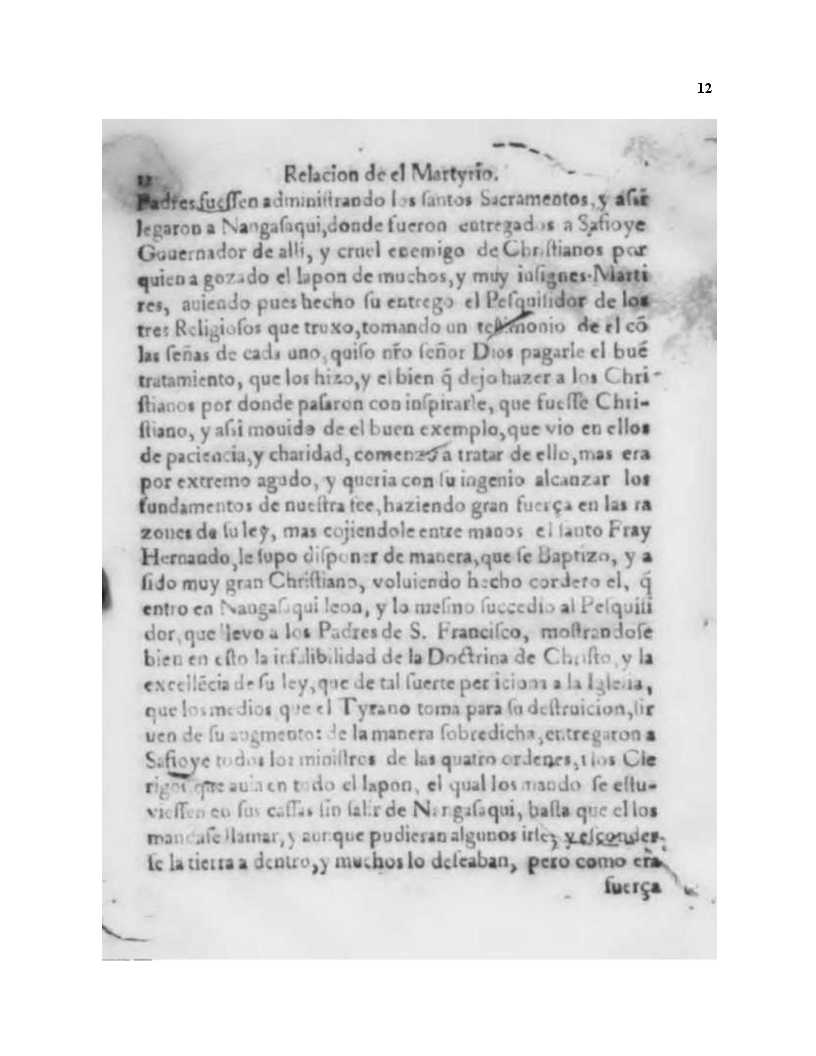 12
12 Relacion de el Martyrio.
Padres fueſſen adminiſtrando los ſantos Sacramentos, y aſsi
legaron a Nangaſaqui, donde fueron entregados a Safioye
Gouernador de alli, y cruel enemigo de Chriſtianos por
quien a gozado el Iapon de muchos, y muy inſignes Marti
res, auiendo pues hecho ſu entrego el Peſquiſidor de los
tres Religioſos que truxo, tomando un teſtimonio de el cõ
las ſeñas de cada uno, quiſo nr̃o ſeñor Dios pagarle el buẽ
tratamiento, que los hizo, y el bien q̃ dejo hazer a los Chri-
ſtianos por donde paſaron con inſpirarle, que fueſſe Chri-
ſtiano, y aſsi mouido de el buen exemplo, que vio en ellos
de paciencia, y charidad, comenzo a tratar de ello, mas era
por extremo agudo, y queria con ſu ingenio alcanzar los
fundamentos de nueſtra fee, haziendo gran fuerça en las ra
zones de ſu ley, mas cojiendole entre manos el ſanto Fray
Hernando, le ſupo diſponer de manera, que ſe Baptizo, y a
ſido muy gran Chriſtiano, voluiendo hecho cordero el, q̃
entro en Nangaſaqui leon, y lo meſmo ſuccedio al Peſquiſi
dor, que llevo a los Padres de S. Franciſco, moſtrandoſe
bien en eſto la infalibilidad de la Doctrina de Chriſto, y la
excellẽcia de ſu ley, que de tal ſuerte perſiciona a la Igleſia,
que los medios que el Tyrano toma para ſu deſtruicion, ſir
uen de ſu augmento: de la manera ſobredicha, entregaron a
Safioye todos los miniſtros de las quatro ordenes, i los Cle
rigos que auia en todo el Iapon, el qual los mando ſe eſtu-
vieſſen en ſus caſſas ſin ſalir de Nangaſaqui, haſta que el los
mandaſe llamar, y aunque pudieran algunos irſe, y eſconder-
ſe la tierra a dentro, y muchos lo deſeaban, pero como era
fuerça